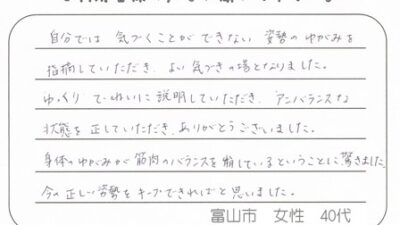 自分では 気づくことが できない 姿勢の ゆがみを
指摘していただき、よい 気づきの 場となりました。
ゆっくり てーねいに 説明していただき、アンバランスな
状態を 正していただき、ありがとうございました。
身体のゆがみが 筋肉のバランスを 崩しているということに 驚きました
今の 正しい 姿勢を キープできればと 思いました。
富山市 女性 40代